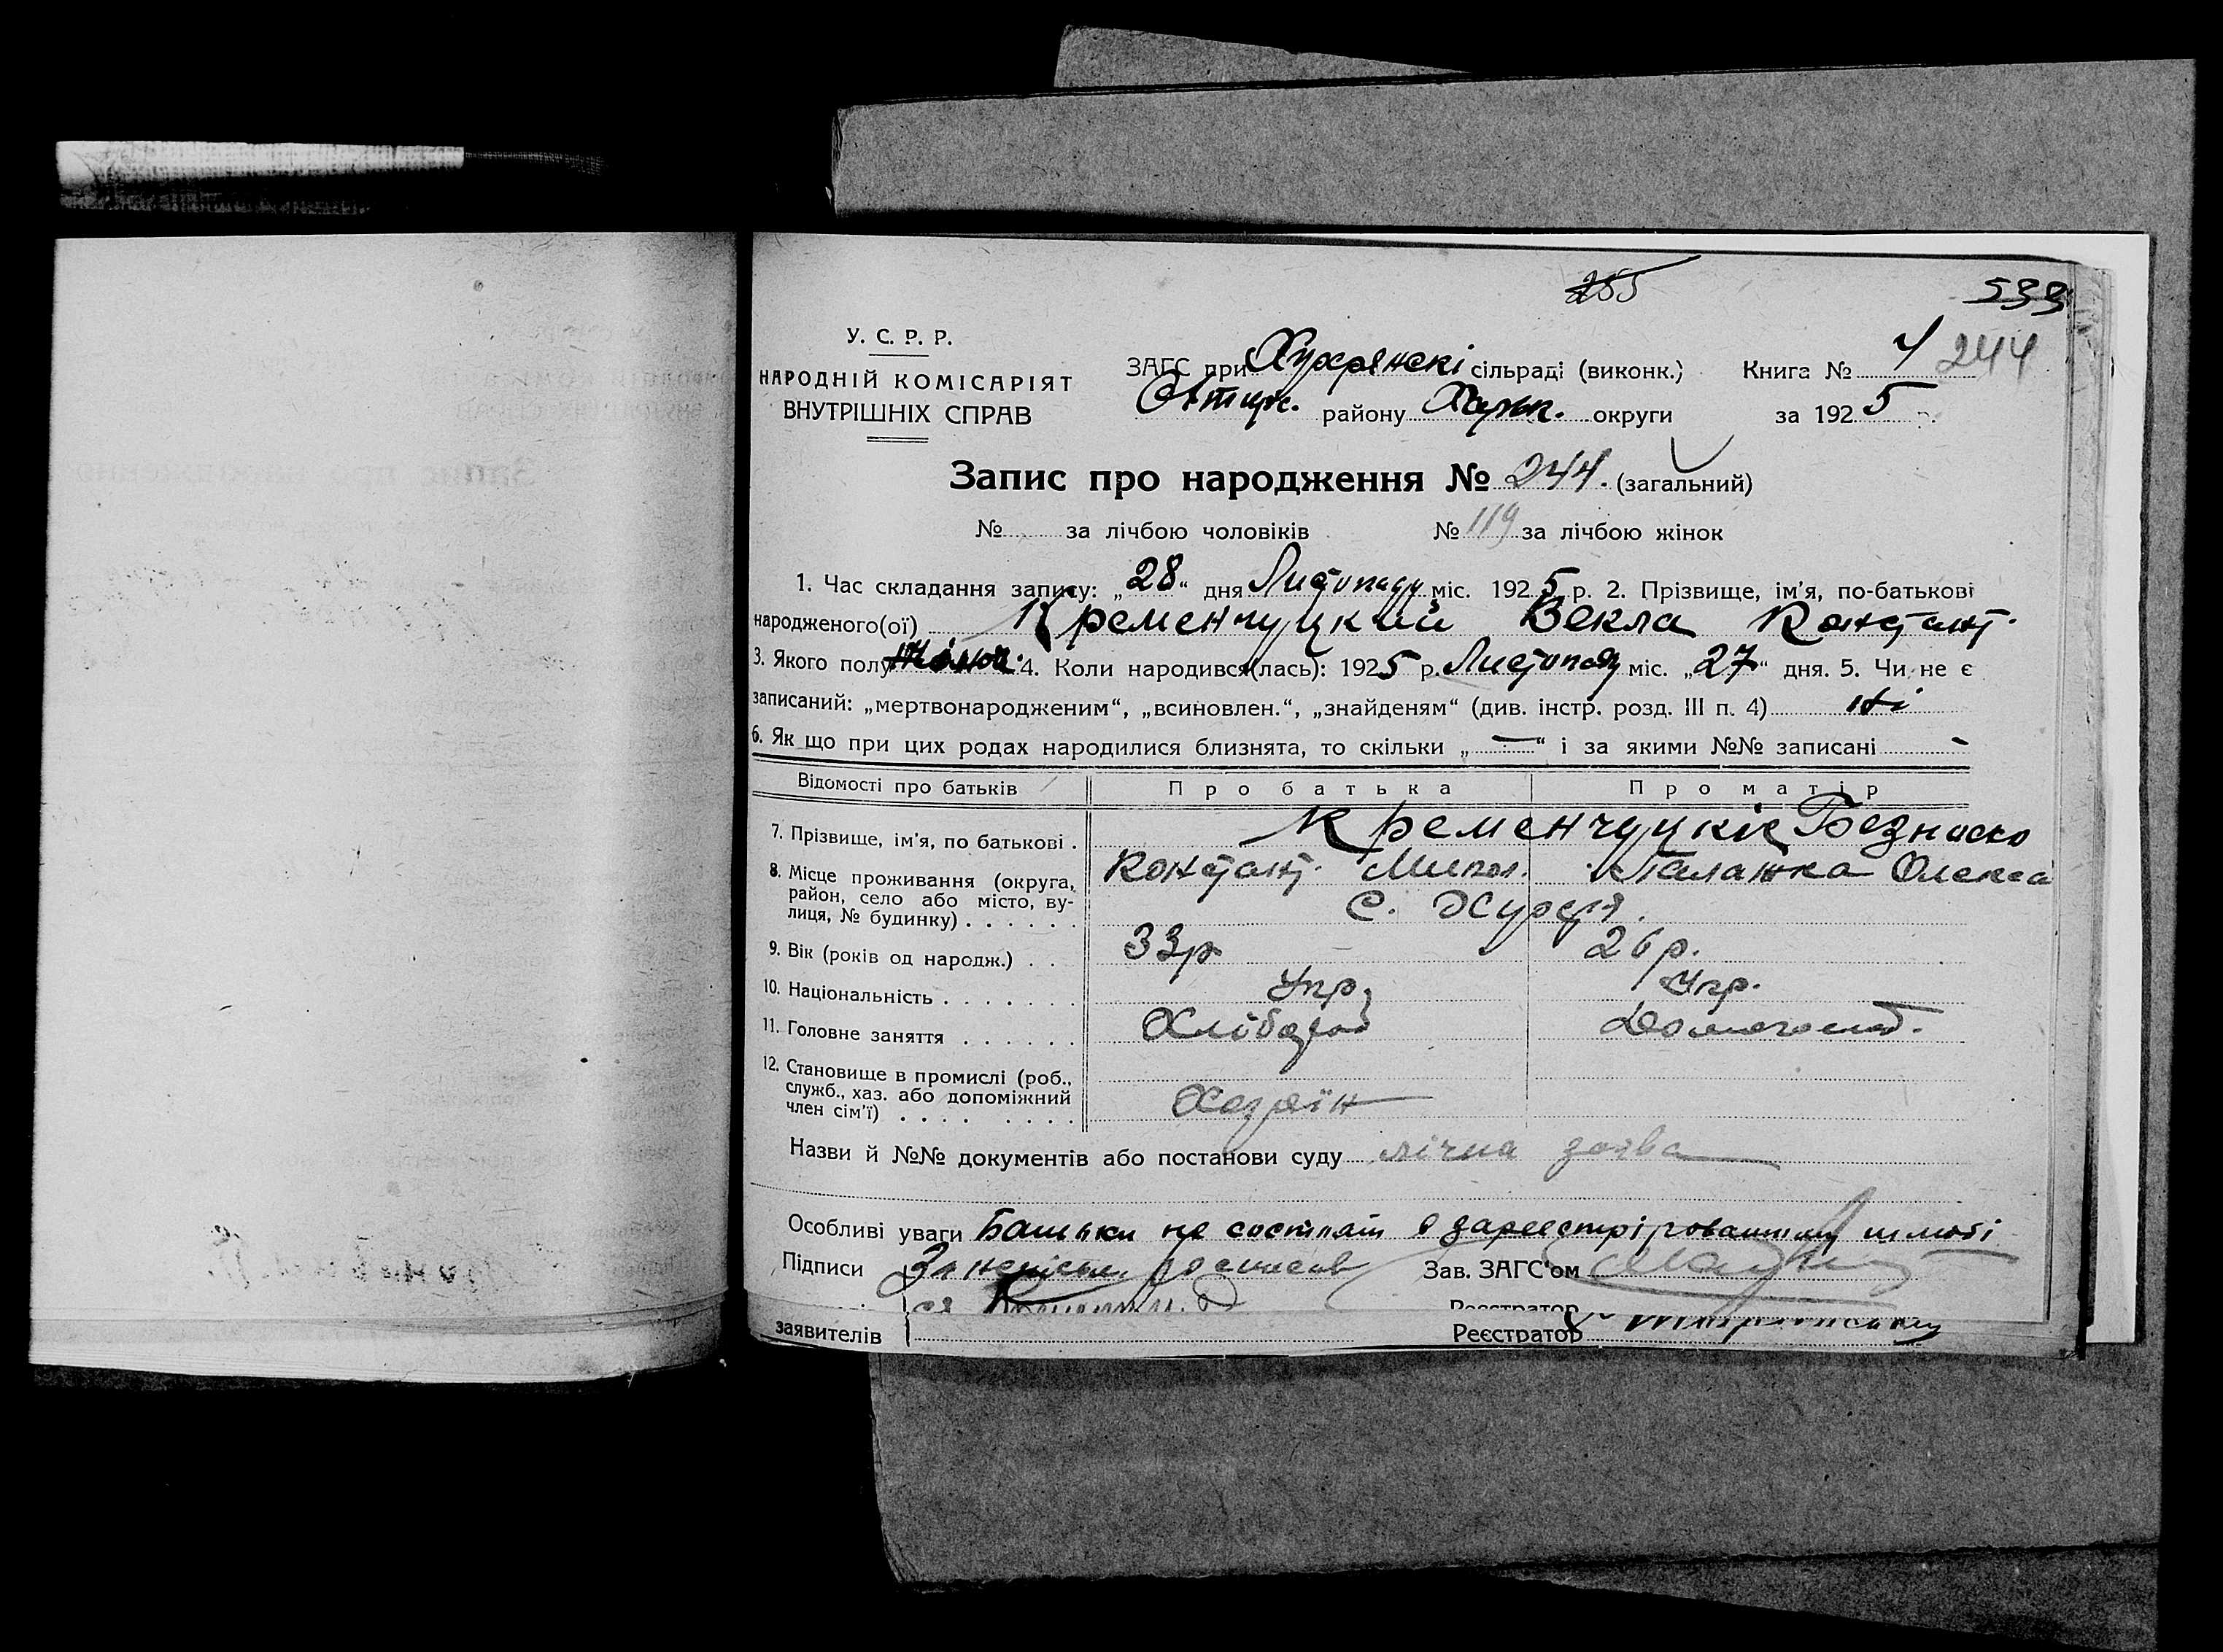 255
533
У. С. Р. Р.
НАРОДНІЙ КОМІСАРІЯТ
ВНУТРІШНІХ СПРАВ
ЗАГС при Хухрянскі сільраді (виконк.) Книга № 244
Охтирк. району Харьк. округи за 1925 р.
Запис про народження № 244. (загальний)
№ за лічбою чоловіків № 119 за лічбою жінок
1. Час складання запису: „28“ дня Листопаду міс. 1925 р. 2. Прізвище, ім'я, по-батькові
народженого(ої) Кременчуцкий Векла Констант.
3. Якого полу жіноч. 4. Коли народився(лась): 1925 р. Листопаду міс. „27“ дня. 5. Чи не є
записаний: „мертвонародженим“, „всиновлен.“, „знайденям“ (див. інстр. розд. III п. 4) ні
6. Як що при цих родах народилися близнята, то скільки „-“ і за якими №№ записані -
Відомості про батьків Про батька Про матір
7. Прізвище, ім'я, по батькові . Кременчуцкіє
Констант. Микол. Палажка Олекса
8. Місце проживання (округа, район, село або місто, вулиця, № будинку) . . . . . . с. Хухря.
9. Вік (років од народж.) . . 33р 26 р.
10. Національність . . . . . . . Укр. Укр.
11. Головне заняття . . . . . . Хлібороб Домогосп.
12. Становище в промислі (роб., служб., хаз. або допоміжний член сім'ї) . . . . . . . . Хозяїн
Назви й №№ документів або постанови суду лічна заява
Особливі уваги Батьки не состоят в зареестрірованим шлюбі
Підписи За неписьм. росписав Зав. ЗАГС'ом
Реєстратор
заявителів Реєстратор